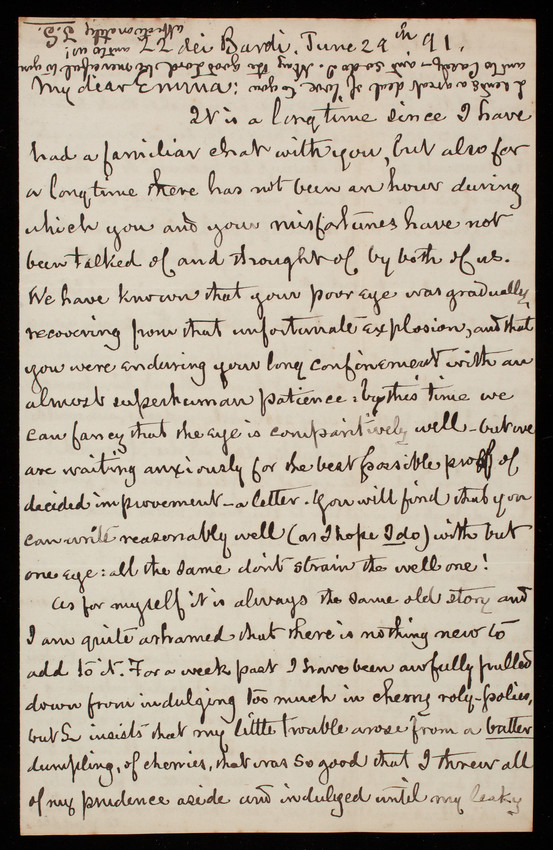 22 dei Bardi. June 29th 91.
My dear Emma:
It is a long time since I have
had a familiar chat with you, but also for
a long time there has not been an hour during
which you and your misfortunes have not
been talked of and thought of by both of us.
We have known that your poor eye was gradually
recovering from that unfortunate explosion, and that
you were enduring your long confinement with an
almost superhuman patience: by this time we
can fancy that the eye is comparitively well - but we
are waiting anxiously for the best possible proof of
decided improvement - a letter. You will find that you
can write reasonably well (as I hope I do) with but
one eye: all the same don't strain the well one!
As for myself it is always the same old story and
I am quite ashamed that there is nothing new to
add to it. For a week past I have been awfully pulled
down from indulging too much in cherry roly-polies,
but L insists that my little trouble arose from a batter
dumpling, of cherries, that was so good that I threw all
of my prudence aside and indulged until my leaky
L sends a great deal of love to you
and to Cathy - and so do I. May the good Lord be merciful to you
and to us!
affectionately T.S.